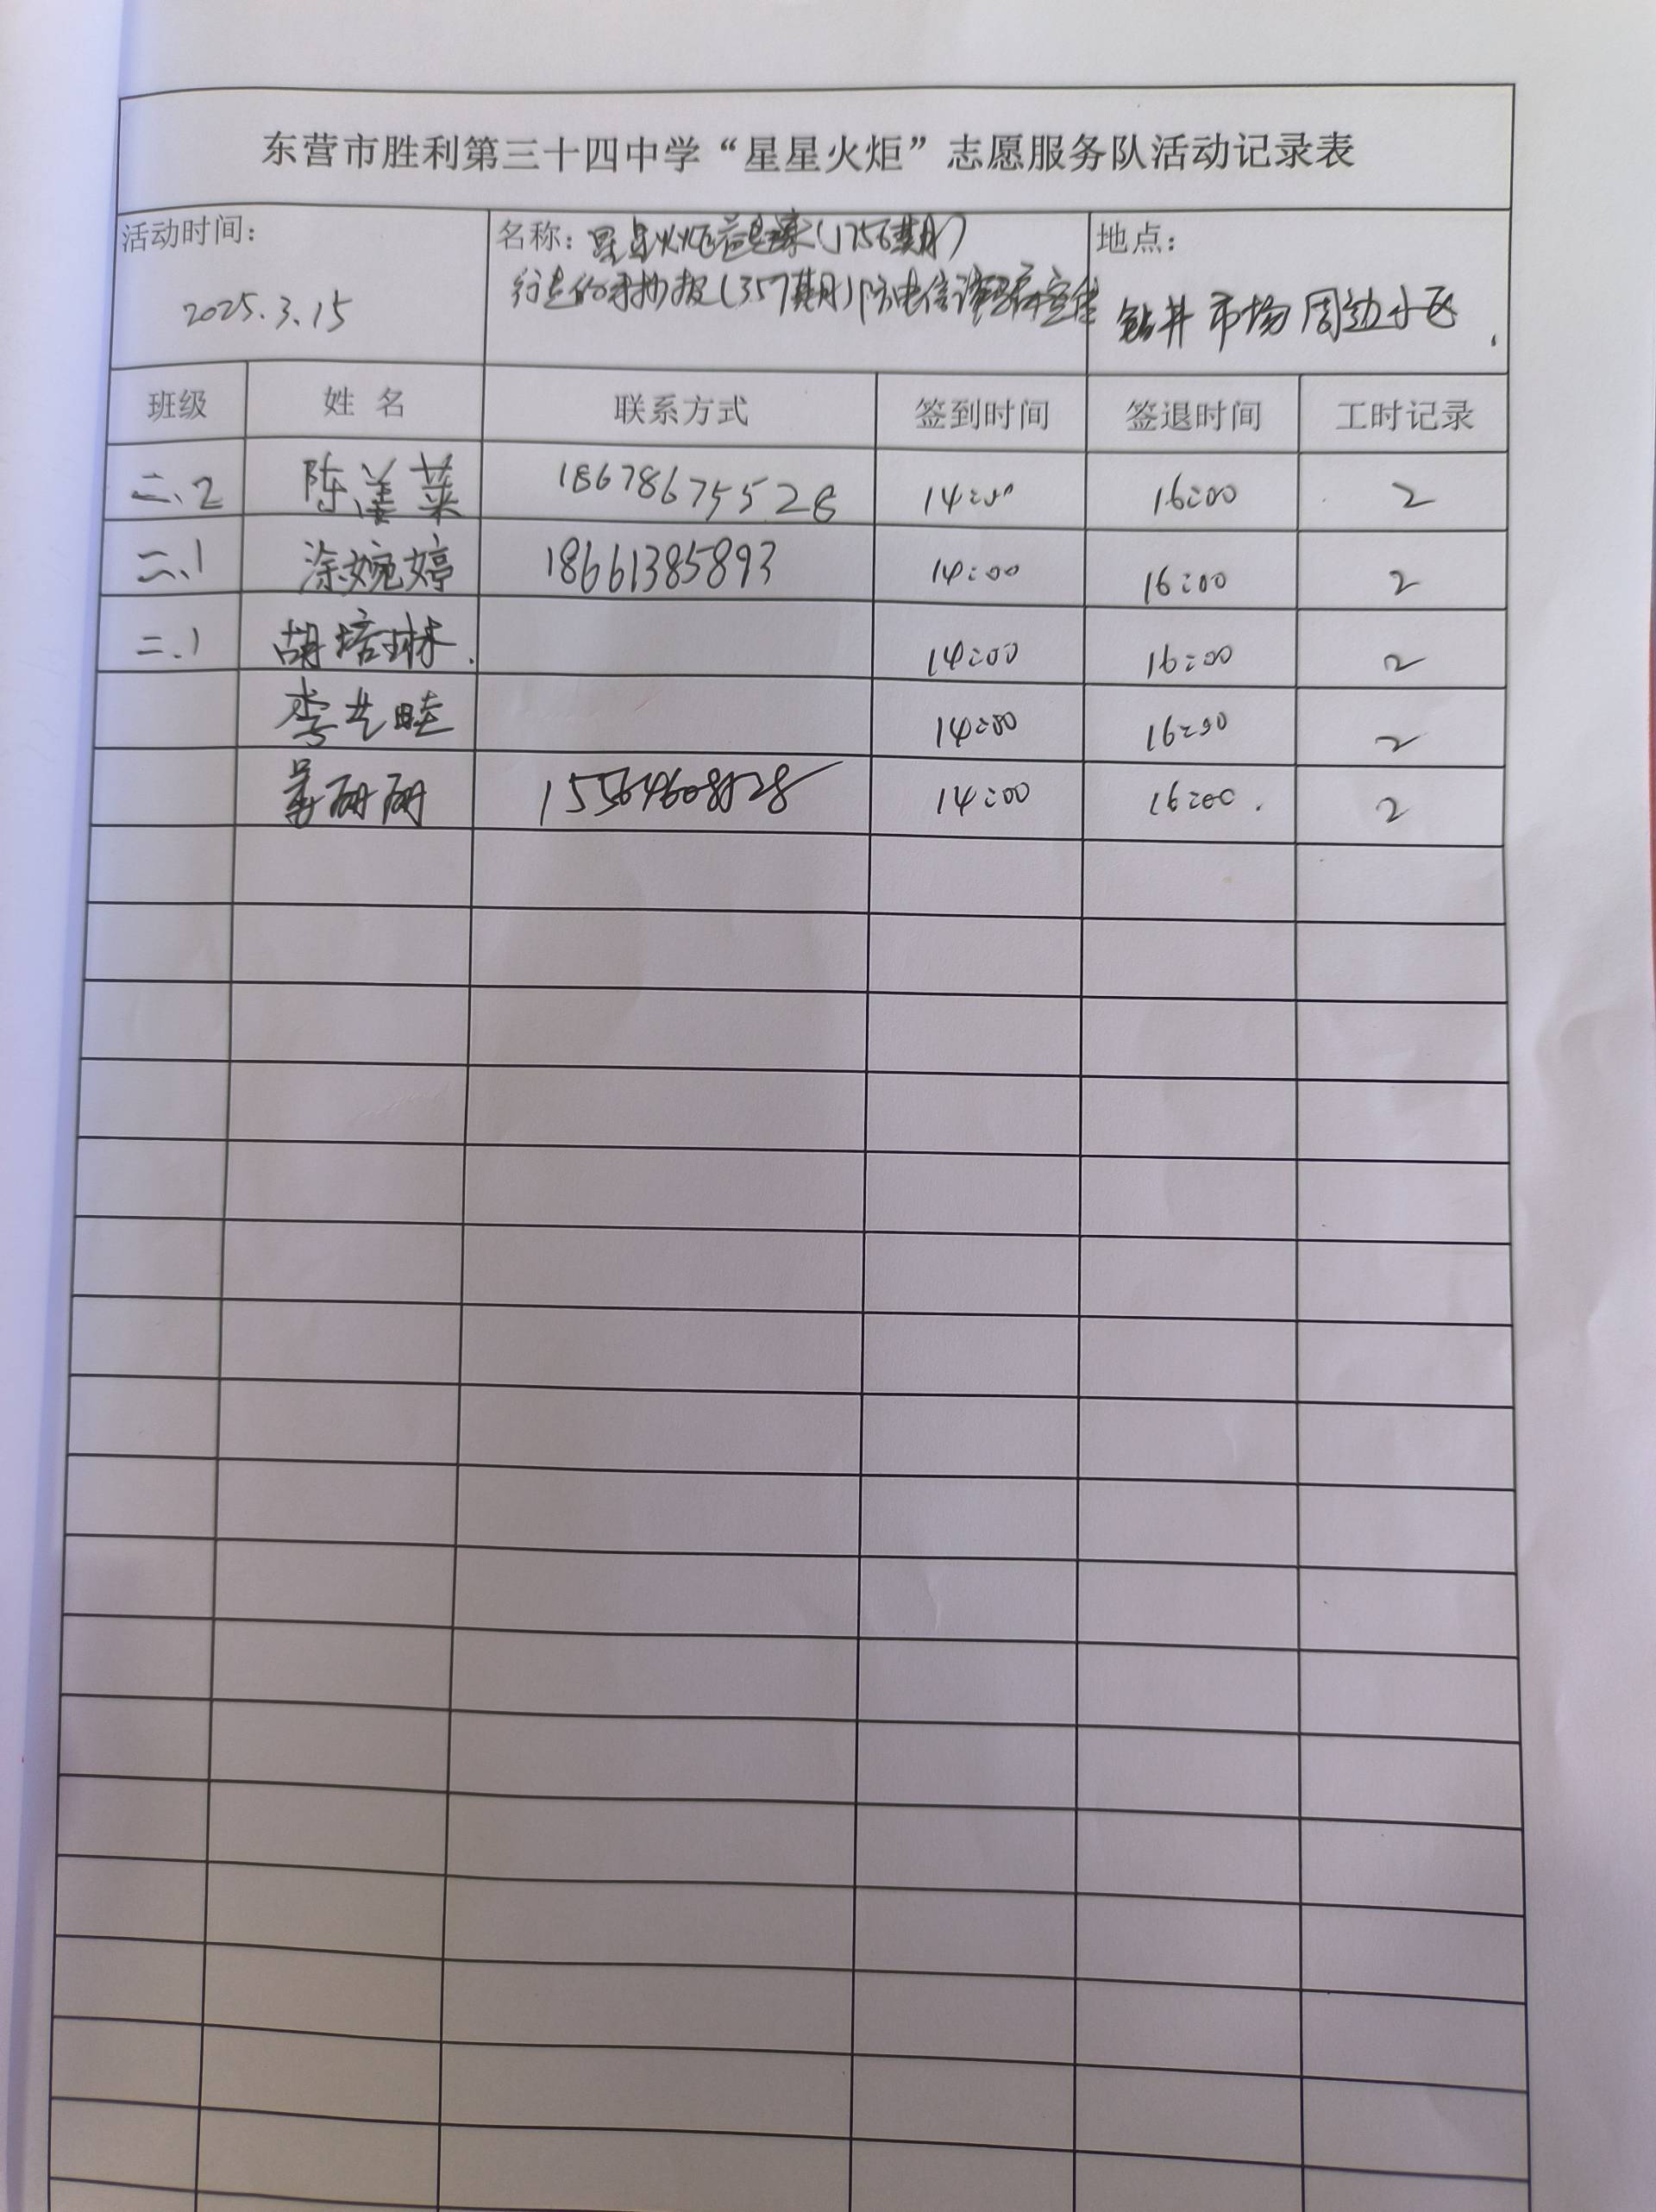 东营市胜利第三十四中学“星星火炬”志愿服务队活动记录表
活动时间： 名称：星星火炬 (1756期) 地点：
2025.3.15 行走的手抄报(357期)防电信诈骗宣传 钻井市场周边小区
班级 姓名 联系方式 签到时间 签退时间 工时记录
二.2 陈 18678675528 14:00 16:00 2
二.1 涂婉婷 18661385893 14:00 16:00 2
二.1 胡培琳. 14:00 16:00 2
李艺畦 14:00 16:00 2
丽丽 14:00 16:00. 2